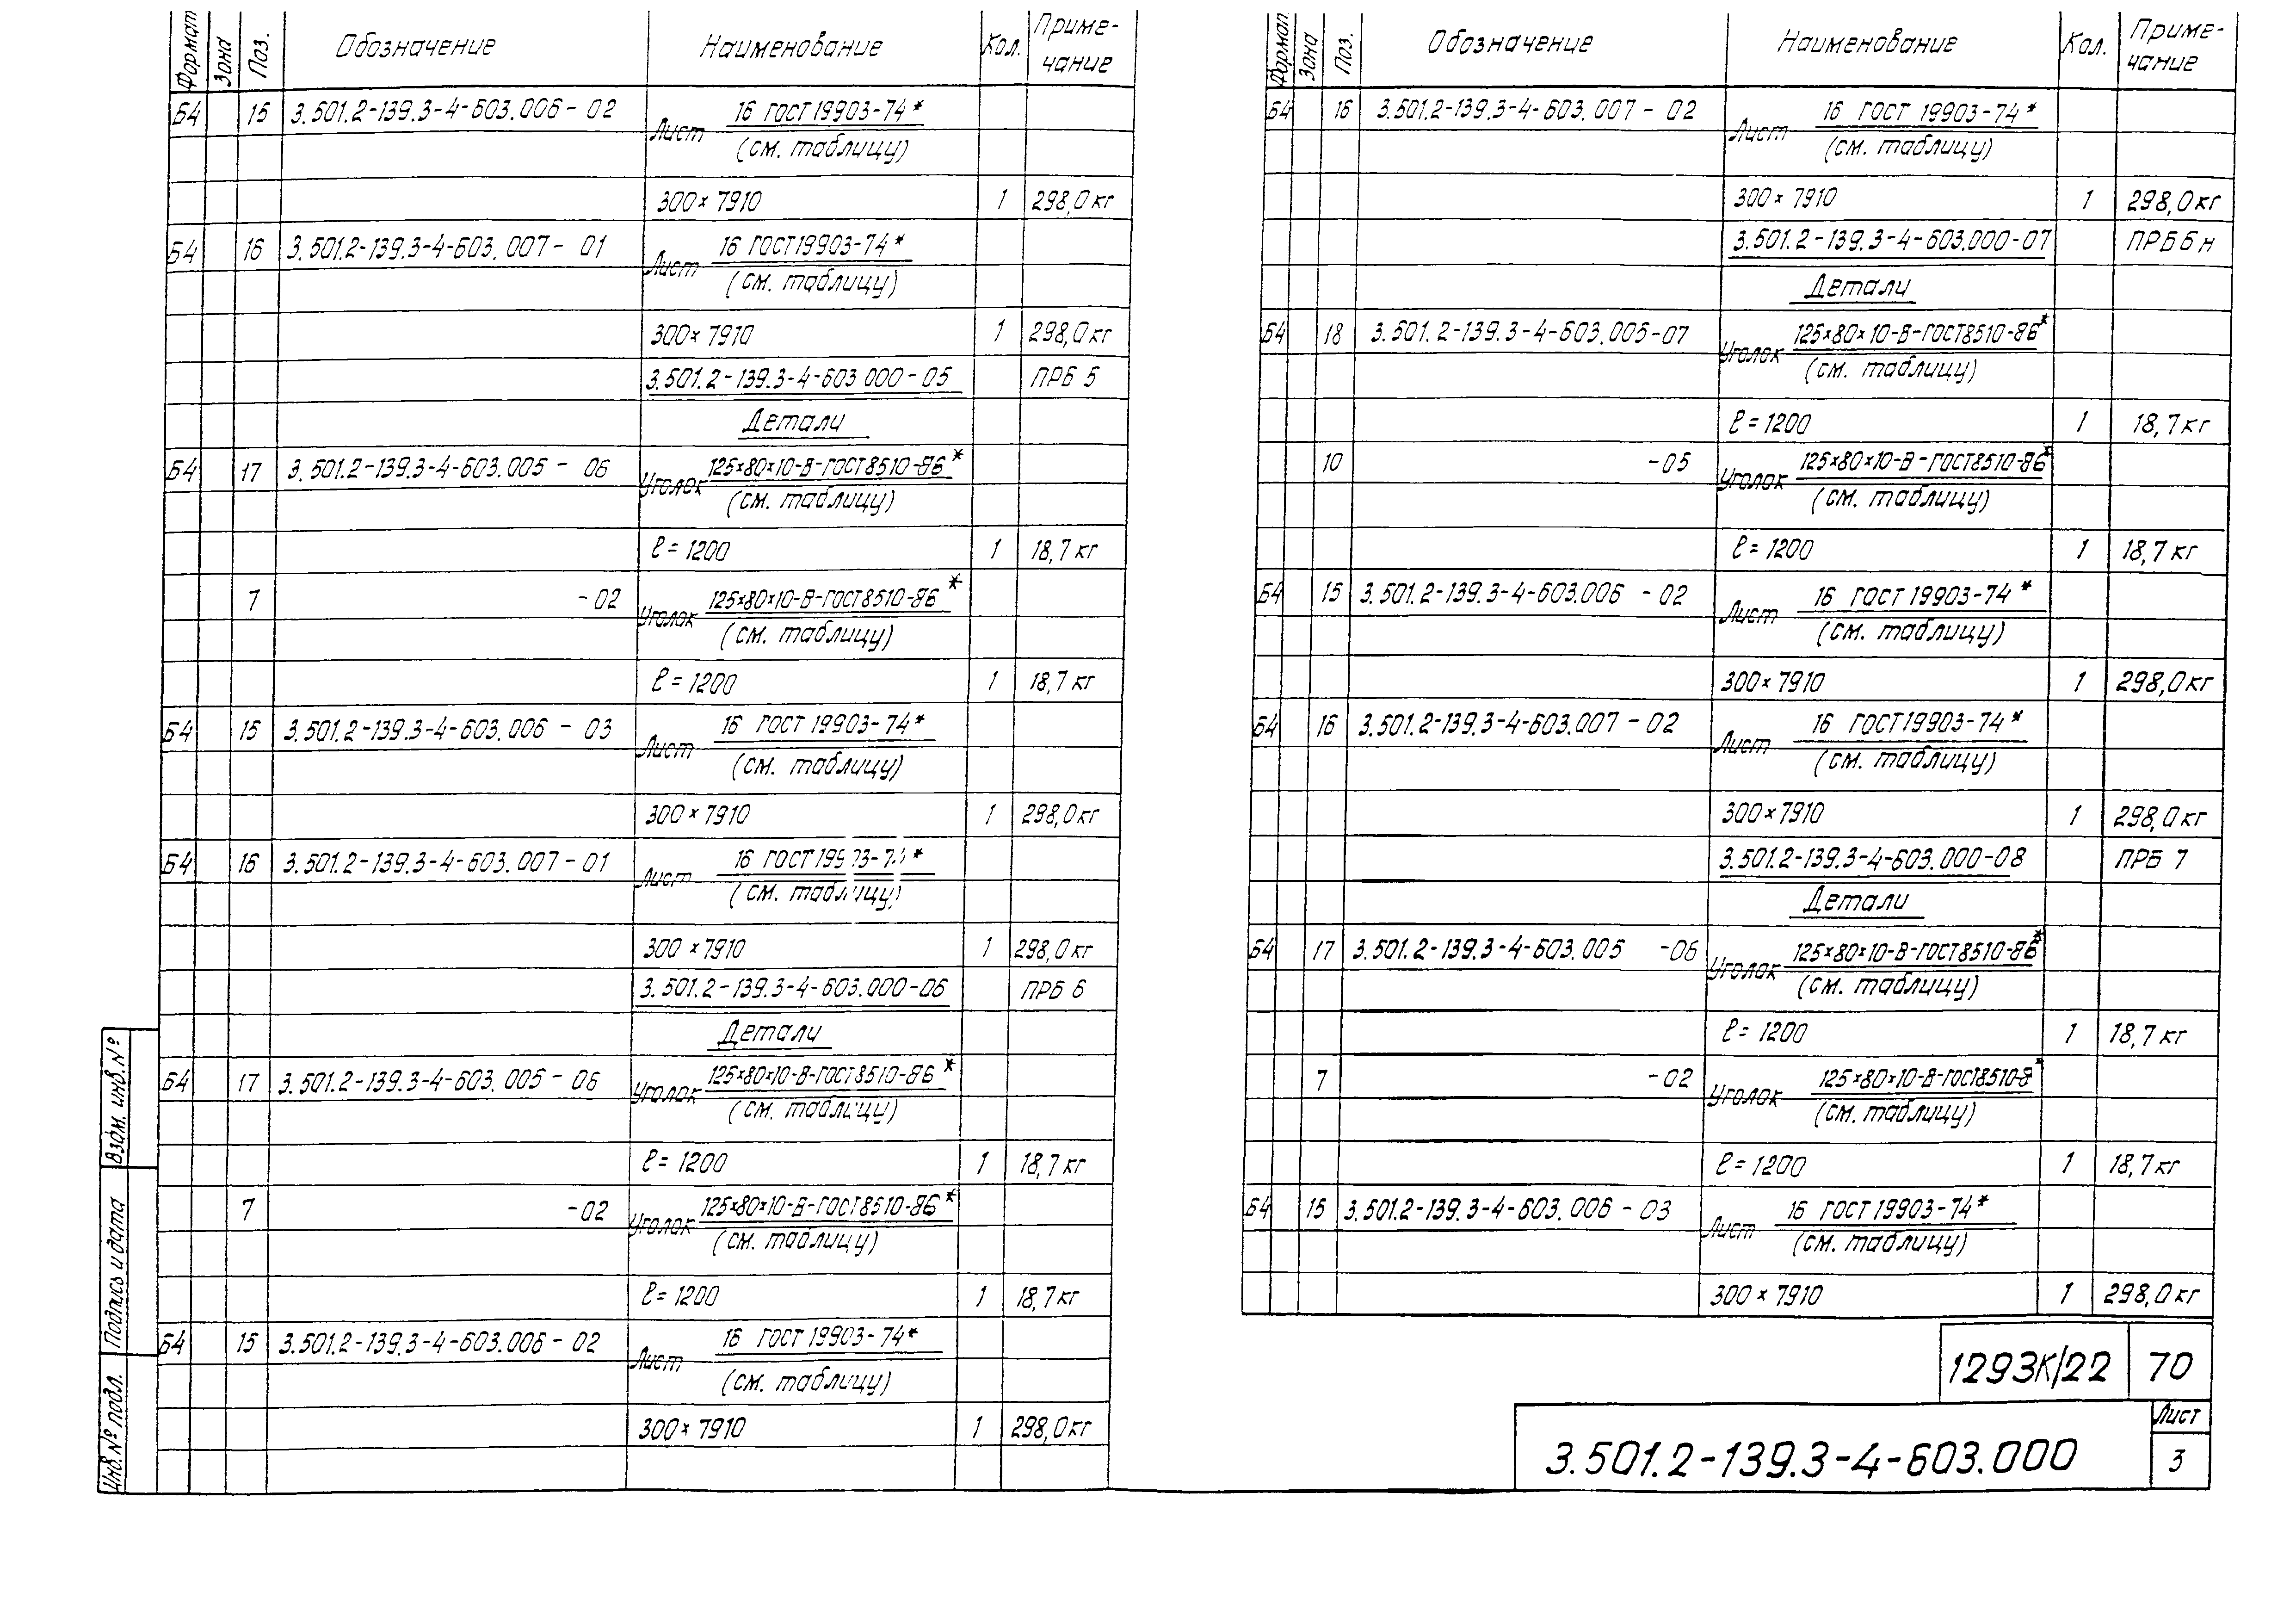 Формат Зона Поз. Обозначение Наименование Кол. Приме-
чание
Б4 15 3.501.2-139.3-4-Б03.006-02 Лист 16 ГОСТ 19903-74*
(см. таблицу)
300×7910 1 298,0 кг
Б4 16 3.501.2-139.3-4-Б03.007-01 Лист 16 ГОСТ 19903-74*
(см. таблицу)
300×7910 1 298,0 кг
3.501.2-139.3-4-Б03 000-05 ПРБ 5
Детали
Б4 17 3.501.2-139.3-4-Б03.005-06 Уголок 125×80×10-В-ГОСТ 8510-86*
(см. таблицу)
ℓ=1200 1 18,7 кг
7 -02 Уголок 125×80×10-В-ГОСТ 8510-86*
(см. таблицу)
ℓ=1200 1 18,7 кг
Б4 15 3.501.2-139.3-4-Б03.006-03 Лист 16 ГОСТ 19903-74*
(см. таблицу)
300×7910 1 298,0 кг
Б4 16 3.501.2-139.3-4-Б03.007-01 Лист 16 ГОСТ 19903-74*
(см. таблицу)
300×7910 1 298,0 кг
3.501.2-139.3-4-Б03.000-06 ПРБ 6
Детали
Б4 17 3.501.2-139.3-4-Б03.005-06 Уголок 125×80×10-В-ГОСТ 8510-86*
(см. таблицу)
ℓ=1200 1 18,7 кг
7 -02 Уголок 125×80×10-В-ГОСТ 8510-86*
(см. таблицу)
ℓ=1200 1 18,7 кг
Б4 15 3.501.2-139.3-4-Б03.006-02 Лист 16 ГОСТ 19903-74*
(см. таблицу)
300×7910 1 298,0 кг
Взам. инв. №
Подпись и дата
Инв. № подл.
Формат Зона Поз. Обозначение Наименование Кол. Приме-
чание
Б4 16 3.501.2-139.3-4-Б03.007-02 Лист 16 ГОСТ 19903-74*
(см. таблицу)
300×7910 1 298,0 кг
3.501.2-139.3-4-Б03.000-07 ПРБ 6 н
Детали
Б4 18 3.501.2-139.3-4-Б03.005-07 Уголок 125×80×10-В-ГОСТ 8510-86*
(см. таблицу)
ℓ=1200 1 18,7 кг
10 -05 Уголок 125×80×10-В-ГОСТ 8510-86*
(см. таблицу)
ℓ=1200 1 18,7 кг
Б4 15 3.501.2-139.3-4-Б03.006-02 Лист 16 ГОСТ 19903-74*
(см. таблицу)
300×7910 1 298,0 кг
Б4 16 3.501.2-139.3-4-Б03.007-02 Лист 16 ГОСТ 19903-74*
(см. таблицу)
300×7910 1 298,0 кг
3.501.2-139.3-4-Б03.000-08 ПРБ 7
Детали
Б4 17 3.501.2-139.3-4-Б03.005 -06 Уголок 125×80×10-В-ГОСТ 8510-86*
(см. таблицу)
ℓ=1200 1 18,7 кг
7 -02 Уголок 125×80×10-В-ГОСТ 8510-8*
(см. таблицу)
ℓ=1200 1 18,7 кг
Б4 15 3.501.2-139.3-4-Б03.006-03 Лист 16 ГОСТ 19903-74*
(см. таблицу)
300×7910 1 298,0 кг
1293К/22 70
3.501.2-139.3-4-Б03.000 Лист
3